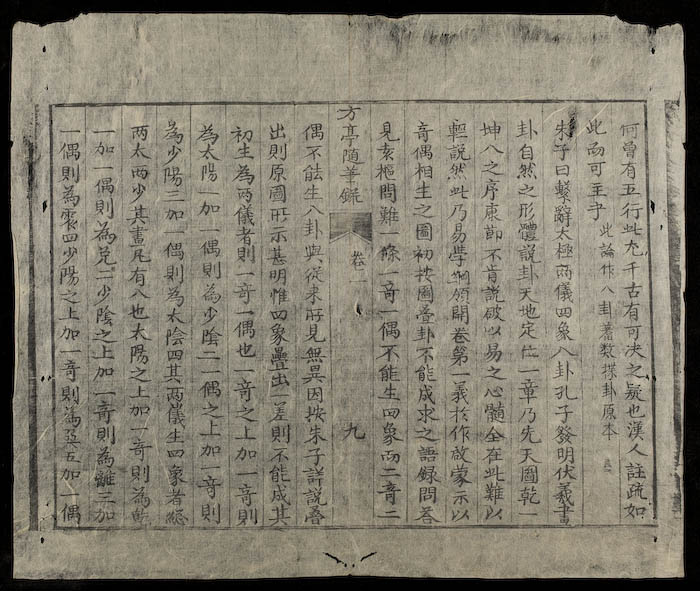 何曽有五行此尤千古有可决之疑也漢人註疏如
此而可主乎 此論作八卦蓍数揲卦原本
朱子曰繫辭太極兩儀四象八卦孔子發明伏羲畫
卦自然之形體說卦天地定位一章乃先天圖乾一
坤八之序康節不肯說破以易之心髓全在此難以
輕說然此乃易學綱領開卷第一義於作啟蒙示以
竒偶相生之圖初按圖疊卦不能成求之語録問荅
見袁樞問難一條一竒一偶不能生四象而二竒二
方亭随筆録 卷一 九
偶不能生八卦與從来所見無異因按朱子詳說畣
出則原圖所示甚明惟四象疊出一差則不能成其
初生為兩儀者則一竒一偶也一竒之上加一竒則
為太陽一加一偶則為少陰二一偶之上加一竒則
為少陽三加一偶則為太陰四其兩儀生四象者總
兩太两少其畫凡有八也太陽之上加一竒則為乾
一加一偶則為兌二少陰之上加一竒則為離三加
一偶則為震四少陽之上加一竒則為巽五加一偶